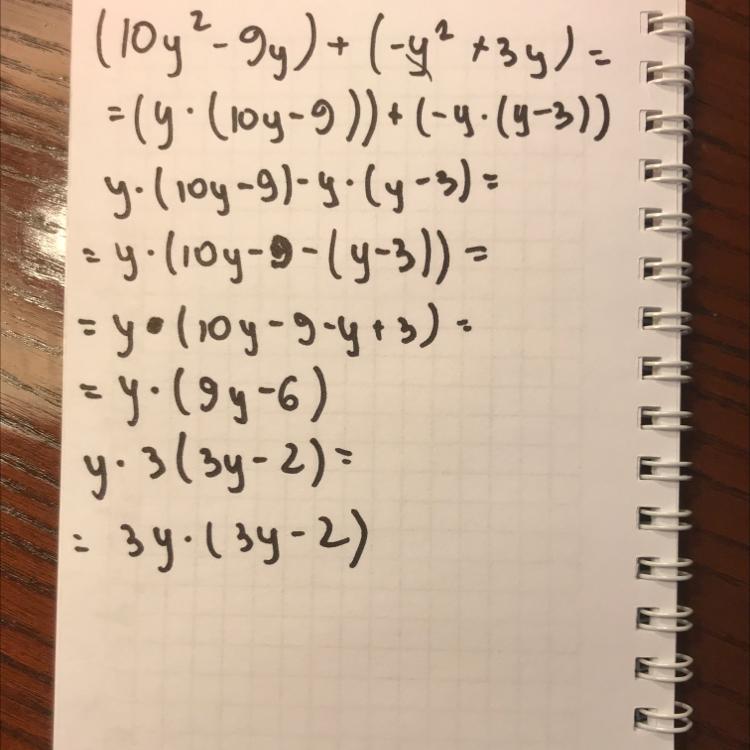 (10y² - 9y) + (-y² + 3y) =
= (y · (10y - 9)) + (-y · (y - 3))
y · (10y - 9) - y · (y - 3) =
= y · (10y - 9 - (y - 3)) =
= y · (10y - 9 - y + 3) =
= y · (9y - 6)
y · 3(3y - 2) =
= 3y · (3y - 2)